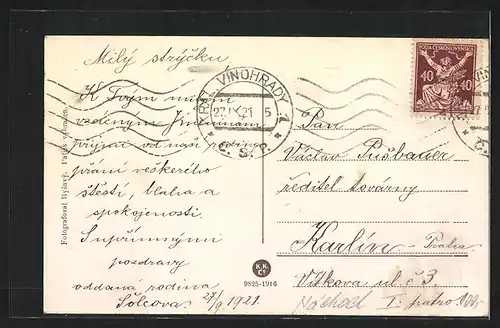 Milý strýčku.
K Tvým
vzdeným Jmeninám
přijmi od naší rodiny
přání veškerého
štěstí, blaha a
spokojenosti.
S upřímnými
pozdravy
oddaná rodina
Šolcova. 27/9 1921.
Fotografoval Ryšavý.
KRÁL. VINOHRADY 1
27.IX.21 5
* Č.S.P. *
K.K.
Cý
9825-1916
POŠTA ČESKOSLOVENSKÁ
40 40
Pan
Václav Pušbauer
ředitel továrny
Karlín - Praha
Vítkova ul č 3
I. patro.
100,-